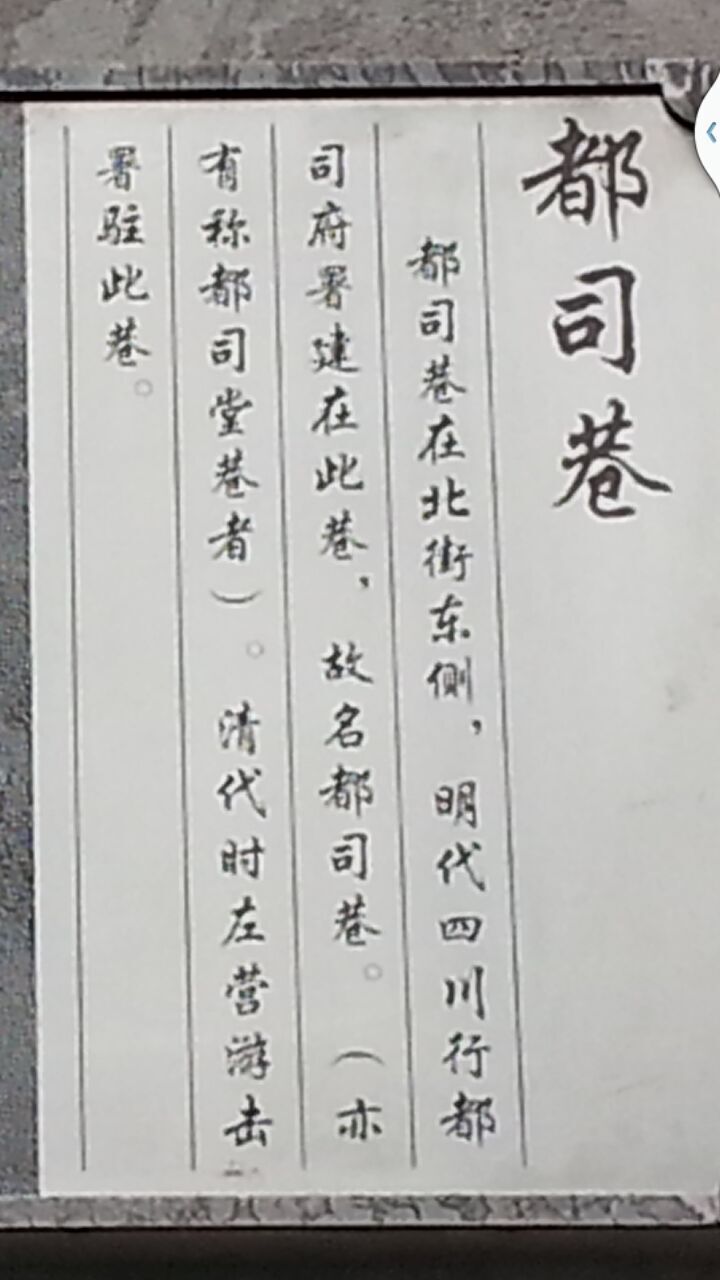 都司巷
都司巷在北街东侧，明代四川行都
司府署建在此巷，故名都司巷。（亦
有称都司堂巷者）。清代时左营游击
署驻此巷。